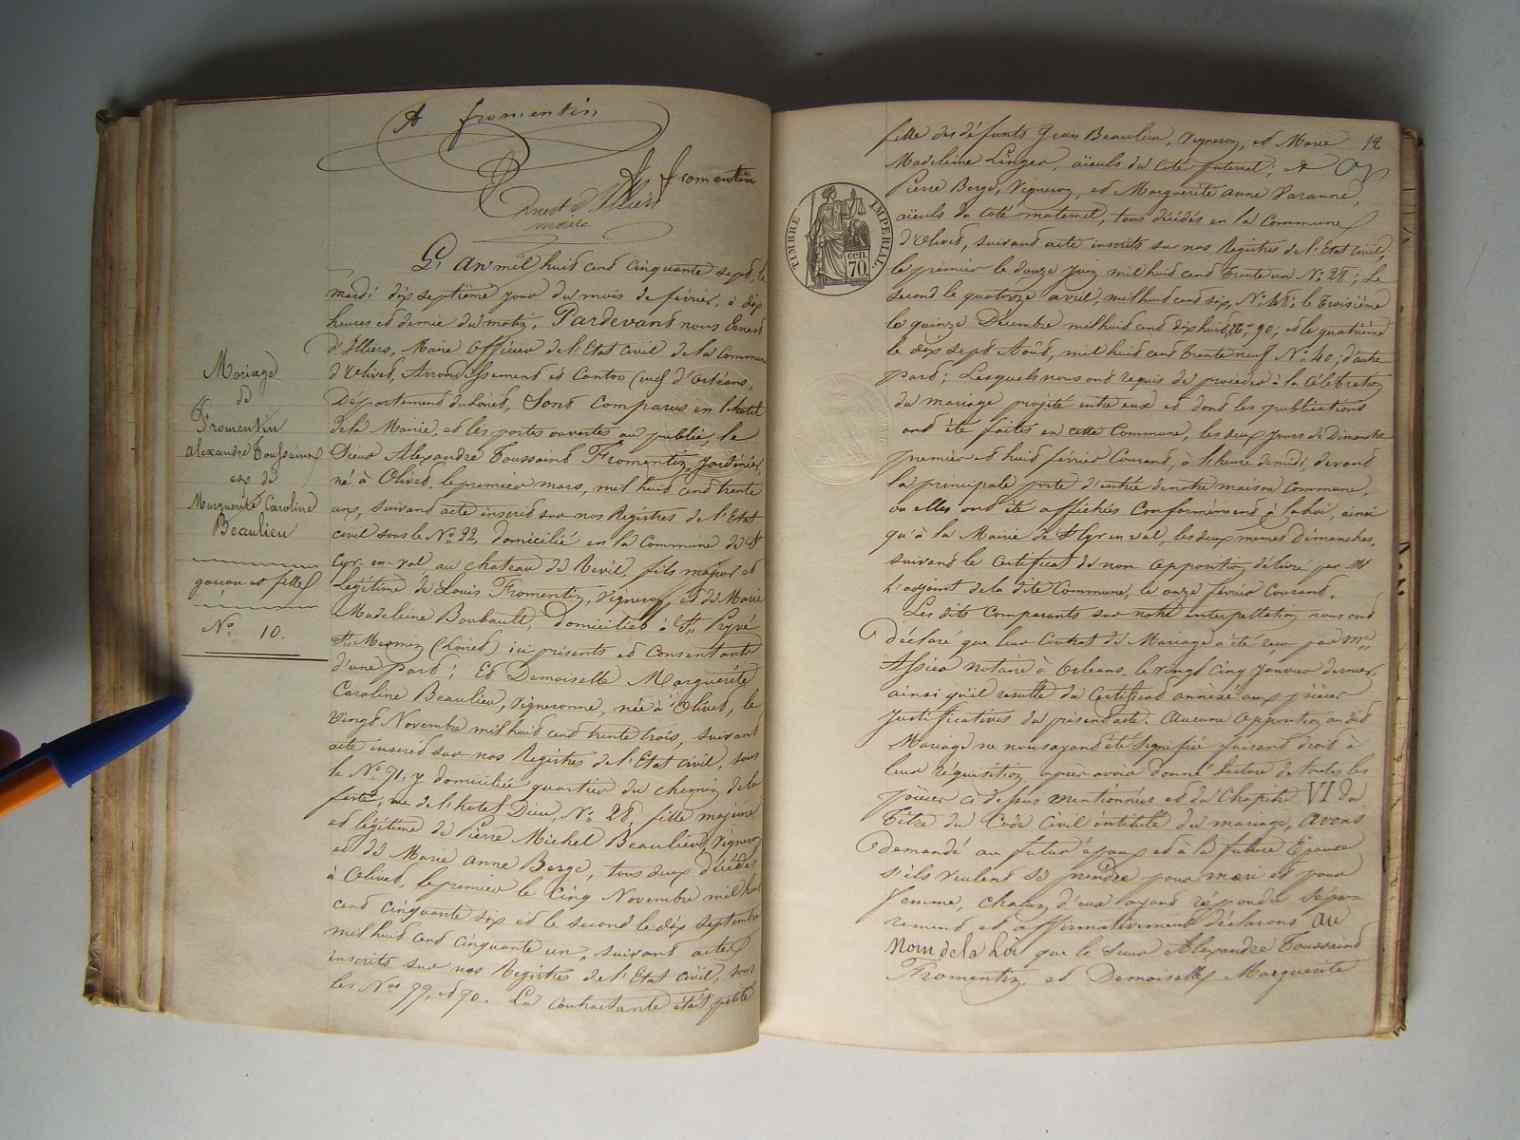 A fromentin
A fromentin
Ernest d'Illiers
maire
Mariage
de
Fromentin
alexandre Toussaint
et de
Marguerite Caroline
Beaulieu
garçon et fille
N° 10.
L'An mil huit cent cinquante sept, le
mardi dix septième jour du mois de février, à dix
heures et demie du matin, Pardevant nous Ernest
d'Illiers, Maire Officier de l'Etat civil de la Commune
d'Olivet, Arrondissement et Canton (sud) d'Orléans,
Département du Loiret, Sont comparus en l'hotel
de la Mairie, et les portes ouvertes au public, le
Sieur Alexandre Toussaint Fromentin, Jardinier,
né à Olivet, le premier mars, mil huit cent trente
ans, suivant acte inscrit sur nos Registres de l'Etat
civil sous le N° 22, domicilié en la Commune de St
Cyr-en-val au chateau de fils majeur et
Légitime de Louis Fromentin, Vigneron, et de Marie
Madeleine Boubault, domiciliés à St Pryvé
St Mesmin (Loiret) ici présents et consentants
d'une part; Et Demoiselle Marguerite
Caroline Beaulieu, Vigneronne, née à Olivet, le
vingt Novembre mil huit cent trente trois, suivant
acte inscrit sur nos Registres de l'Etat civil, sous
le N° 71, y domiciliée quartier du chemin de la
ferté, rue de l'hotel Dieu, N° 28, fille majeure
et légitime de Pierre Michel Beaulieu, Vigneron
et de Marie anne Berge, tous deux décédés
à Olivet, le premier le Cinq Novembre mil huit
cent cinquante six et le second le dix septembre
mil huit cent cinquante un, suivant actes
inscrits sur nos Registres de l'Etat civil, sous
les Nos 99, et 70. La contractante était petite
12
fille des défunts Jean Beaulieu, Vigneron, et Marie
Madeleine Linger, aïeuls du coté paternel; et
Pierre Berge, Vigneron, et Marguerite anne Varanne,
aïeuls du coté maternel, tous décédés en la Commune
d'Olivet, suivant acte inscrits sur nos Registres de l'Etat civil,
le premier le douze Juin mil huit cent trente un N° 28; Le
second le quatorze avril, mil huit cent dix, N° 48; le troisième
le quinze Décembre mil huit cent dix huit, N° 90; et le quatrième
le dix sept Août, mil huit cent trente neuf N° 40; d'autre
part; Lesquels nous ont requis de procéder à la célébration
du mariage projeté entre eux et dont les publications
ont été faites en cette Commune, les deux jours de Dimanche
premier et huit février Courant, à l'heure de midi, devant
la principale porte d'entrée de notre maison Commune,
où elles ont été affichées Conformément à la loi, ainsi
qu'à la Mairie de St Cyr en val, les deux mêmes Dimanches,
suivant le Certificat de non Opposition, délivré par Mr
l'adjoint de la dite Commune, le onze février Courant.
Les dits Comparents sur notre interpellation nous ont
déclaré que leur Contrat de Mariage a été reçu par Me
notaire à Orléans, le vingt Cinq Janvier dernier,
ainsi qu'il résulte du Certificat annexé aux pièces
justificatives du présent acte. Aucune Opposition au dit
Mariage ne nous ayant été signifiée faisant droit à
leur réquisition, après avoir donné lecture de toutes les
pièces ci dessus mentionnées et du Chapitre VI du
titre du Code Civil intitulé du mariage, avons
demandé au futur époux et à la future Epouse
s'ils veulent se prendre pour mari et pour
femme, chacun d'eux ayant répondu sépa-
rément et affirmativement déclarons au
Nom de la Loi que le Sieur Alexandre Toussaint
Fromentin, et Demoiselle Marguerite
TIMBRE IMPERIAL
70 CEN.